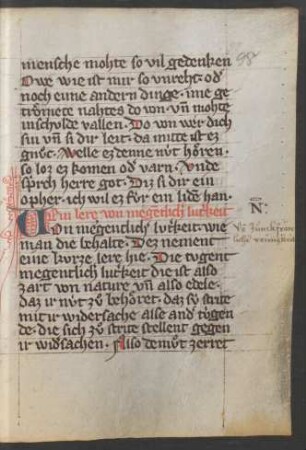 98
mensche mohte so vil gedenken
Owe wie ist mir so vnrehs od'
noch eine andern dinge · ime ge
trömete nahtes do von · vn̄ mohte
in schulde vallen · Do von wer dich
sin vn̄ si dir leit · da mitte ist ez
gnůc · Welle ez denne nv́t hören ·
so loz ez komen od' varn · Vnde
sprich herre got · Diz si dir ein
opher · ich wil ez fúr ein lidē han ·
Ein lere von megetlich' lutkeit
Von megentlich' lv́tkeit wie
man die behalte · Dez nement
eine kvrze lere hie · Die tvgent
megentlich lutkeit die ist also
zart von nature vn̄ also edele ·
daz ir nv́t zů behöret · daz sv́ strite
mit ir widersache alse and' túgen
de · die sich zů strite stellent gegen
ir wid'sachen · Also demv̊t zerret
N̄·